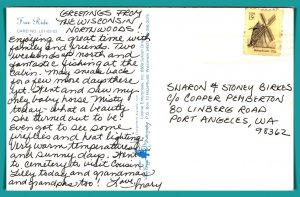 Free Ride
GREETINGS FROM
THE WISCONSIN
NORTHWOODS!
Enjoying a great time with
family and friends. Two
weekends up north and
fantastic fishing at the
cabin. may sneak back
for a few more days there
yet. Went and saw my
only baby horse "Misty"
today - what a beauty
she turned out to be
even got to see some
and heat lighting
Very warm temperatures
and sunny days. Went
to cemetery to visit Cousin
Lilly today and grandma
and grandpa too! Love, Mary
USA 15c
SHARON & STONEY BIRKES
C/O COPPER PEMBERTON
80 LINBERG ROAD
PORT ANGELES, WA
98362